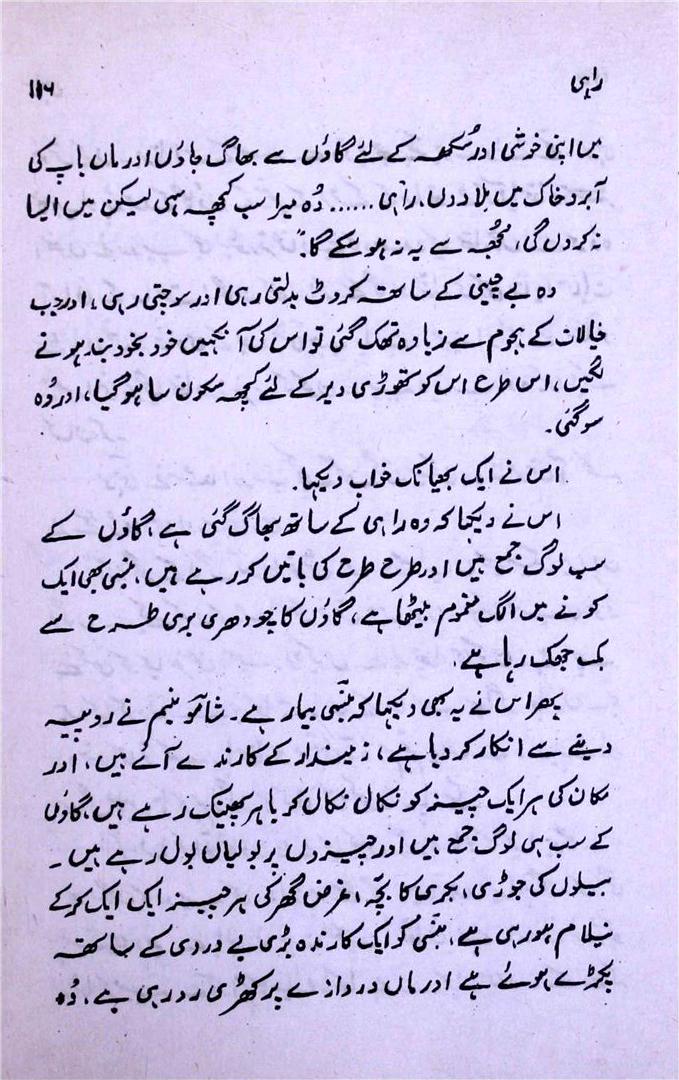 راہی ۱۱۶
میں اپنی خوشی اور سُکھ کے لئے گاؤں سے بھاگ جاؤں اور ماں باپ کی
آبرو خاک میں مِلا دوں، راہی ...... وُہ میرا سب کچھ سہی لیکن میں ایسا
نہ کروں گی، مجھ سے یہ نہ ہو سکے گا"۔
وہ بے چینی کے ساتھ کروٹ بدلتی رہی اور سوچتی رہی، اور جب
خیالات کے ہجوم سے زیادہ تھک گئی تو اس کی آنکھیں خود بخود بند ہونے
لگیں، اس طرح اس کو تھوڑی دیر کے لئے کچھ سکون سا ہو گیا، اور وُہ
سو گئی۔
اس نے ایک بھیانک خواب دیکھا۔
اس نے دیکھا کہ وہ راہی کے ساتھ بھاگ گئی ہے، گاؤں کے
سب لوگ جمع ہیں اور طرح طرح کی باتیں کر رہے ہیں، بنسی بھی ایک
کونے میں الگ مغموم بیٹھا ہے، گاؤں کا چودھری بری طرح سے
بک جھک رہا ہے۔
پھر اس نے یہ بھی دیکھا کہ بنسی بیمار ہے۔ شامو منیم نے روپیہ
دینے سے انکار کر دیا ہے، زمیندار کے کارندے آئے ہیں، اور
مکان کی ہر ایک چیز کو نکال نکال کر باہر پھینک رہے ہیں، گاؤں
کے سب ہی لوگ جمع ہیں اور چیزوں پر بولیاں بول رہے ہیں۔
بیلوں کی جوڑی، بکری کا بچّہ، غرض گھر کی ہر چیز ایک ایک کر کے
نیلام ہو رہی ہے، بنسی کو ایک کارندہ بڑی بے دردی کے ساتھ
پکڑے ہوئے ہے اور ماں دروازے پر کھڑی رو رہی ہے، وُہ